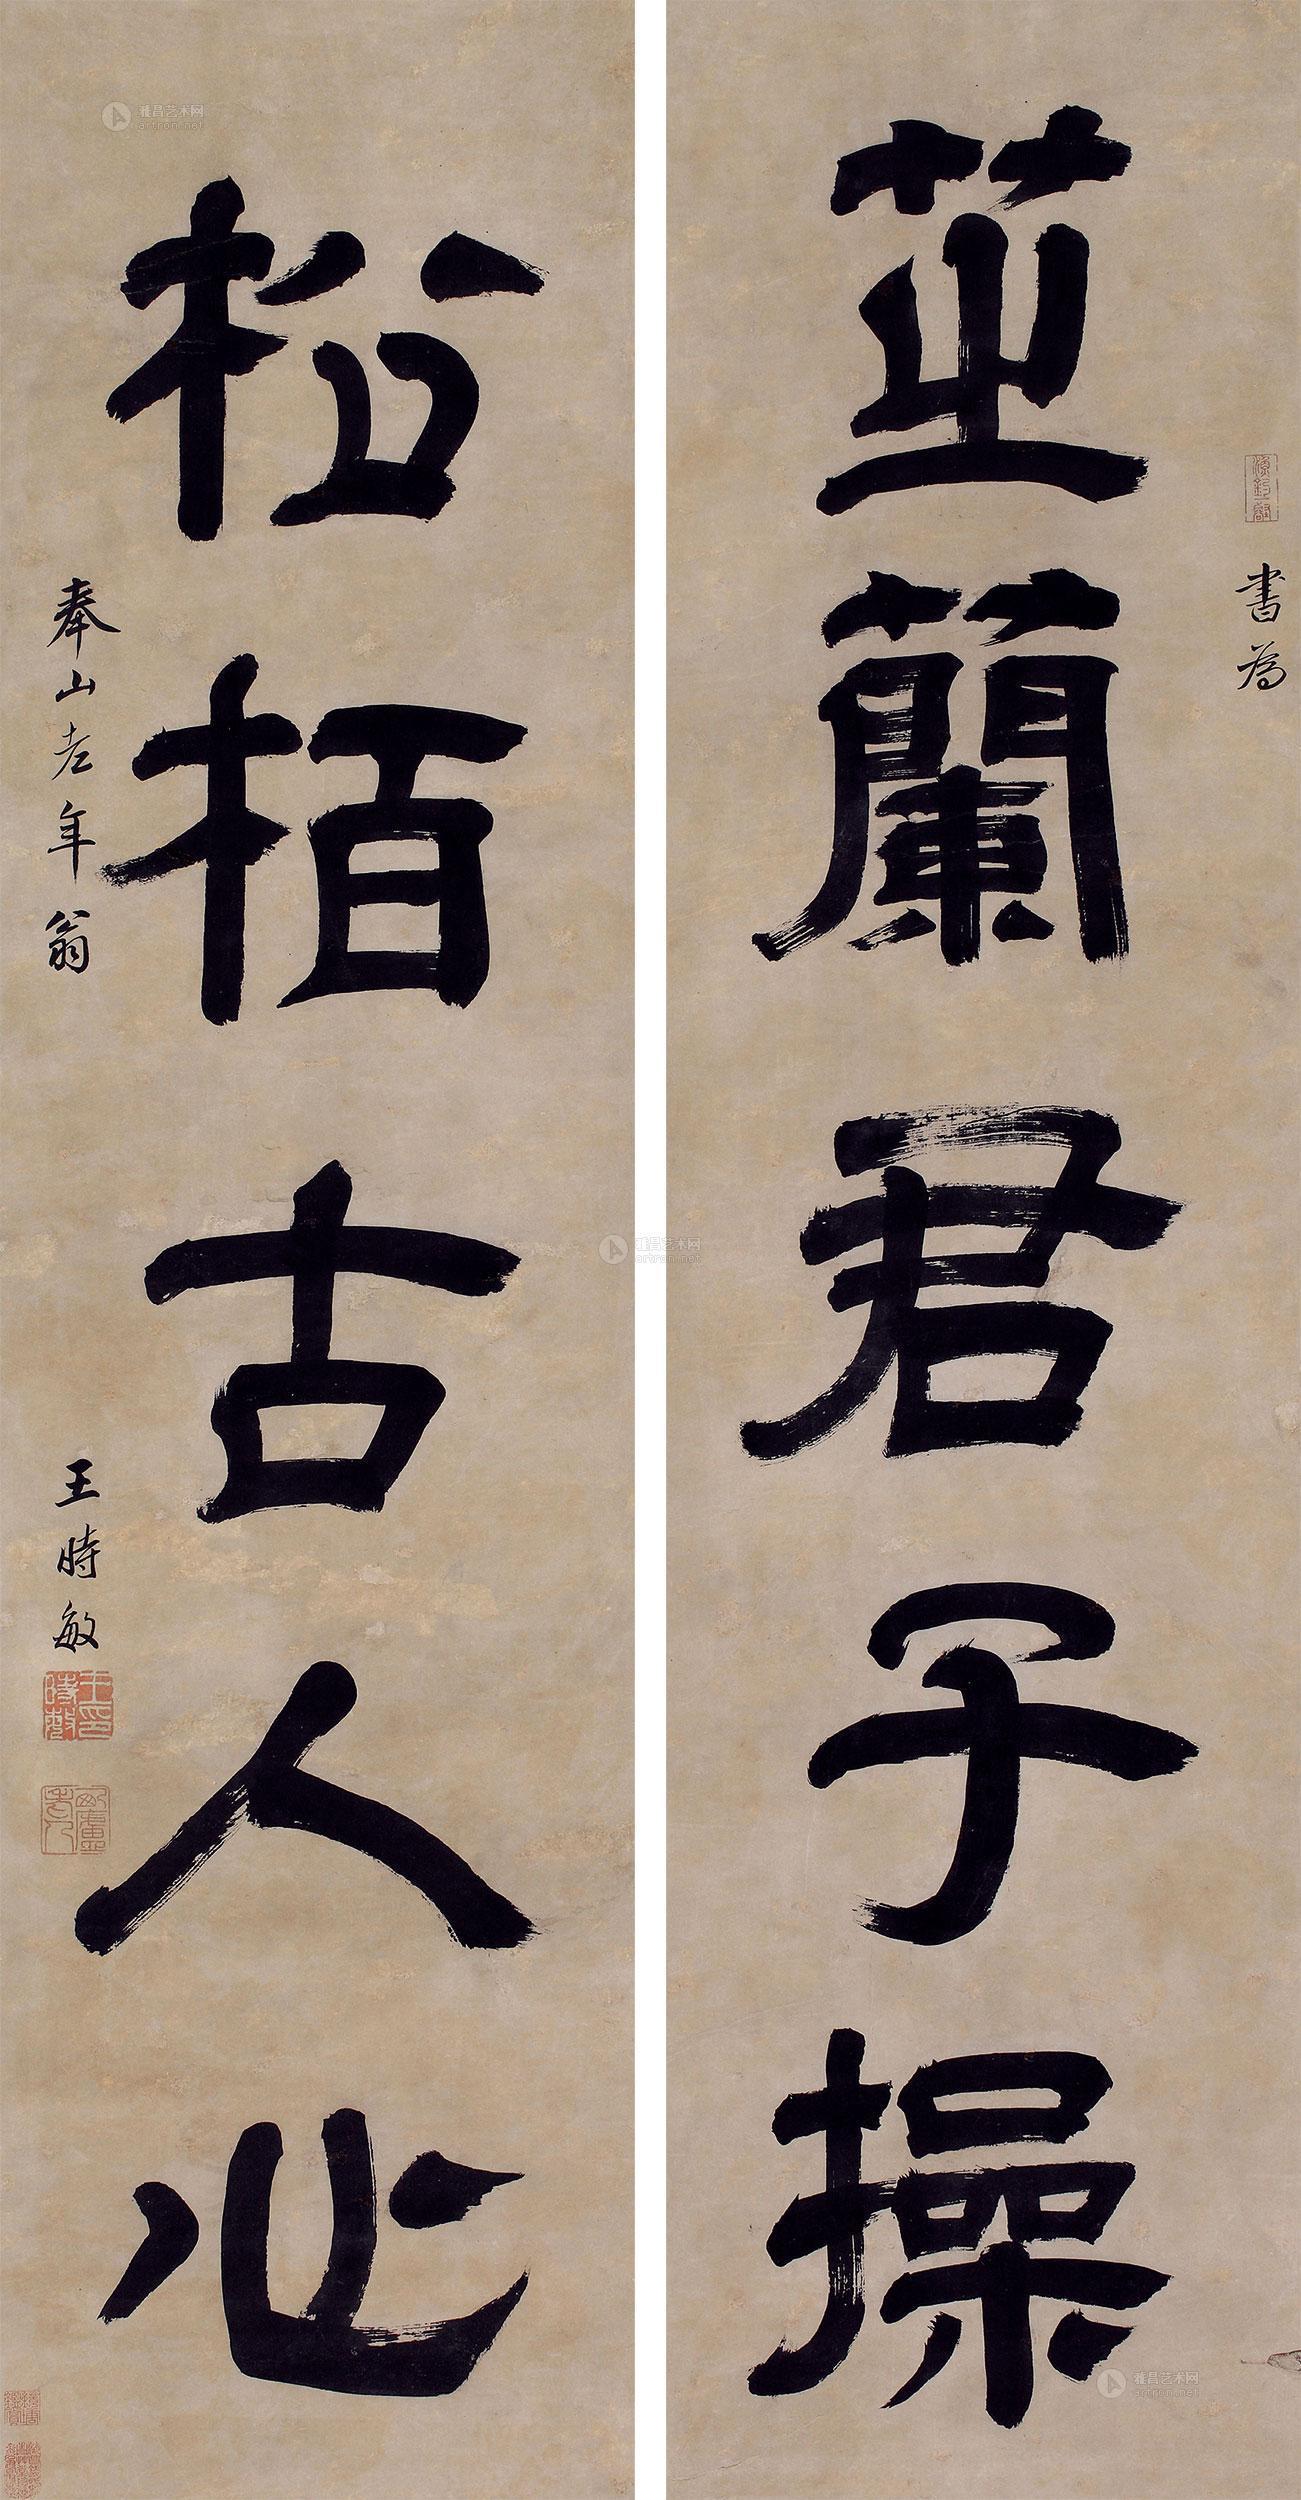 書為
芷蘭君子操
松栢古人心
奉山老年翁
王時敏
雅昌艺术网
artron.net
雅昌艺术网
artron.net
雅昌艺术网
artron.net